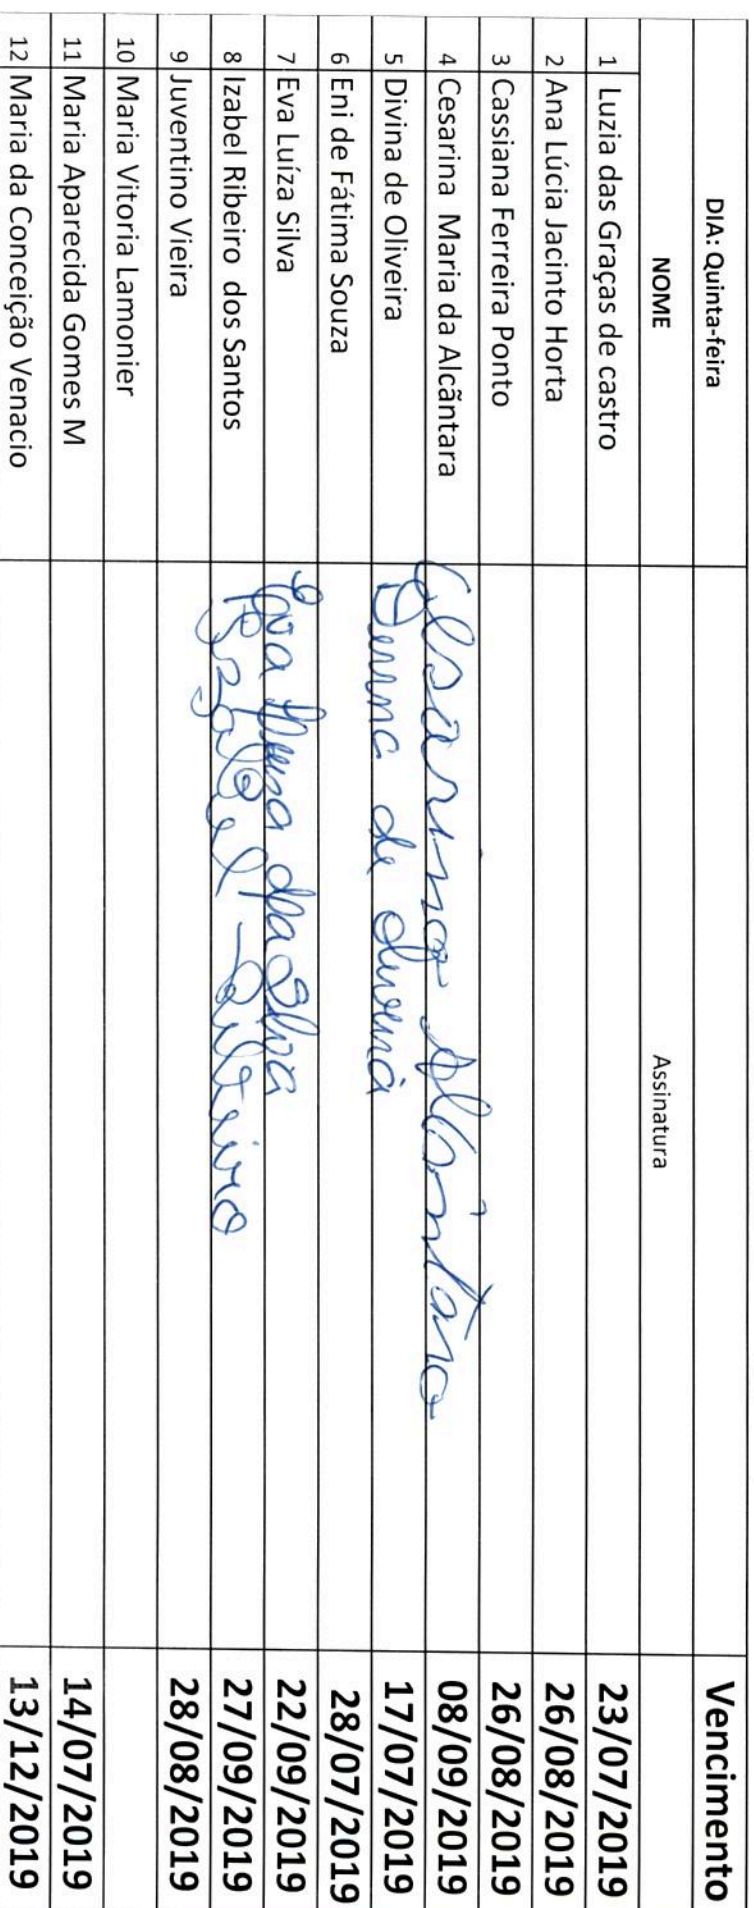 DIA: Quinta-feira Vencimento
NOME Assinatura
1 Luzia das Graças de castro 23/07/2019
2 Ana Lúcia Jacinto Horta 26/08/2019
3 Cassiana Ferreira Ponto 26/08/2019
4 Cesarina Maria da Alcãntara Cesarina Alcântara 08/09/2019
5 Divina de Oliveira de 17/07/2019
6 Eni de Fátima Souza 28/07/2019
7 Eva Luíza Silva Eva da Silva 22/09/2019
8 Izabel Ribeiro dos Santos 27/09/2019
9 Juventino Vieira 28/08/2019
10 Maria Vitoria Lamonier
11 Maria Aparecida Gomes M 14/07/2019
12 Maria da Conceição Venacio 13/12/2019